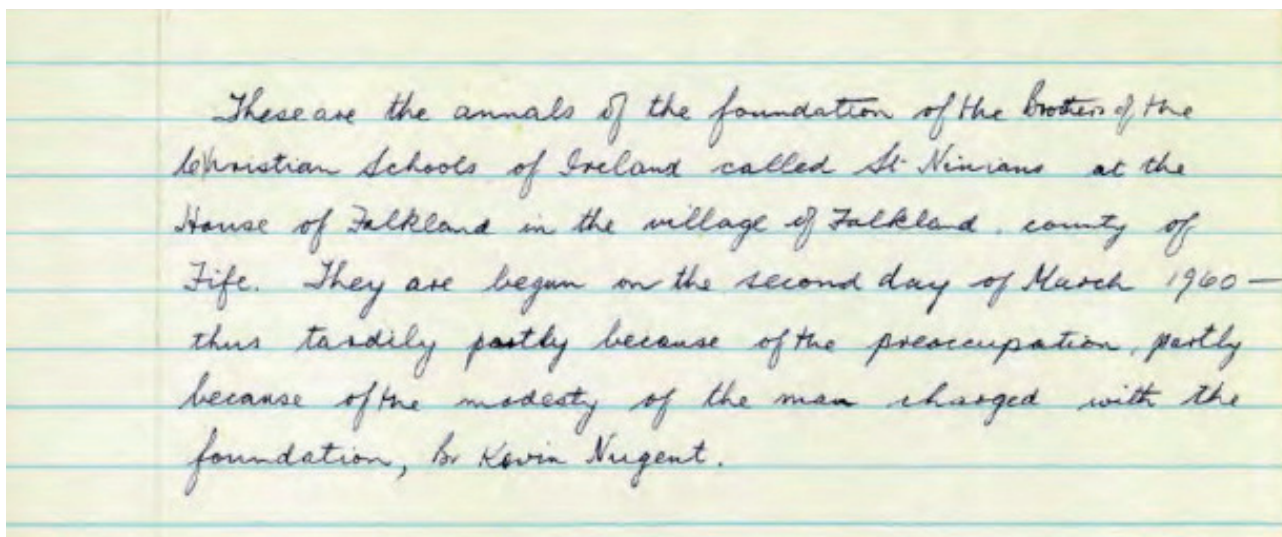 These are the annals of the foundation of the Brothers of the
Christian Schools of Ireland called St Ninians at the
House of Falkland in the village of Falkland, county of
Fife. They are begun on the second day of March 1960 —
thus tardily partly because of the preoccupation, partly
because of the modesty of the man charged with the
foundation, Br Kevin Nugent.